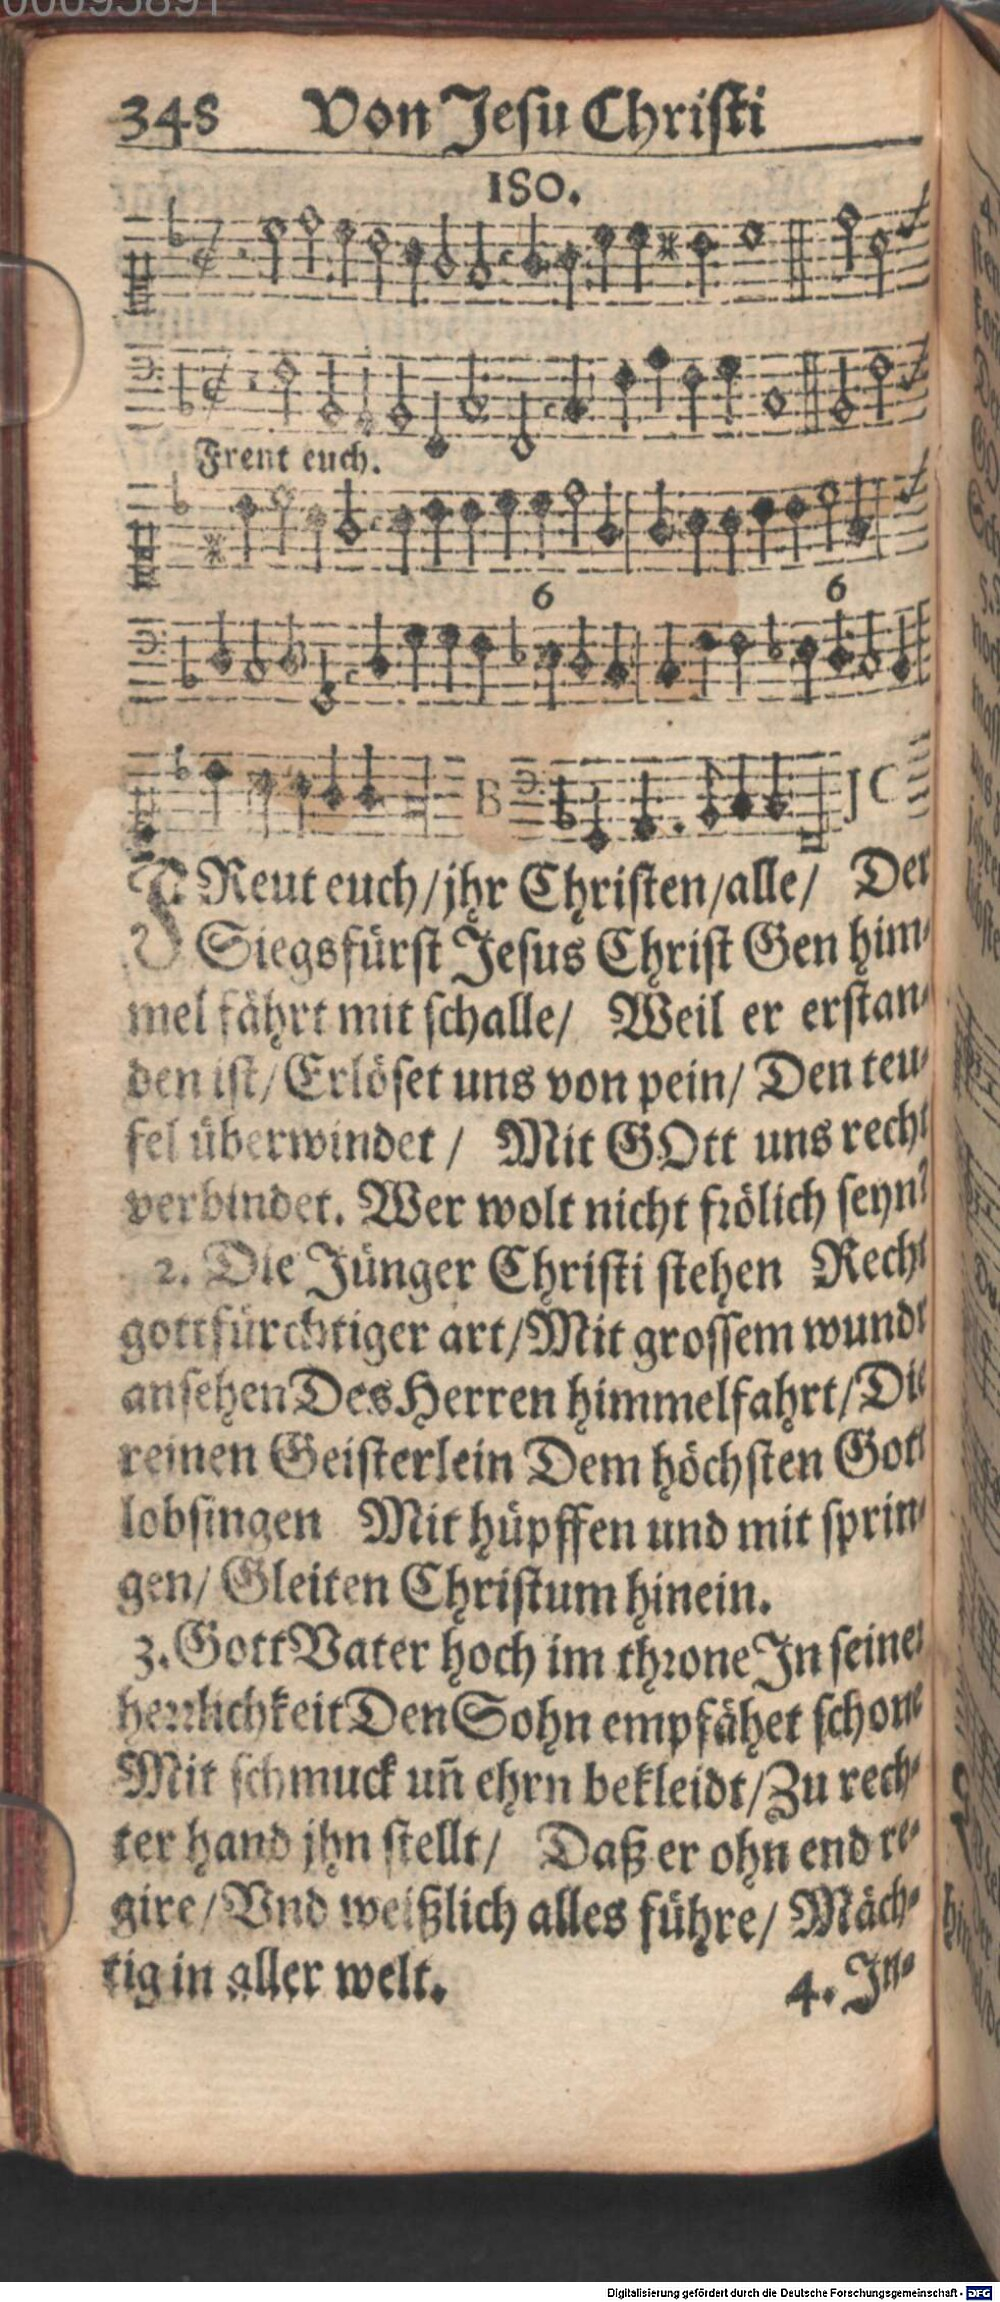 348 Von Jesu Christi
180.
Freut euch.
6 6
B J C
FReut euch/jhr Christen/alle/ Der
Siegsfürst Jesus Christ Gen him-
mel fährt mit schalle/ Weil er erstan-
den ist/Erlöset uns von pein/Den teu-
fel überwindet/ Mit GOtt uns recht
verbindet. Wer wolt nicht frölich seyn?
2. Die Jünger Christi stehen Recht
gottfürchtiger art/Mit grossem wundr
ansehen Des Herren himmelfahrt/Die
reinen Geisterlein Dem höchsten Gott
lobsingen Mit hüpffen und mit sprin-
gen/Gleiten Christum hinein.
3. Gott Vater hoch im throne In seiner
herrlichkeit Den Sohn empfähet schone
Mit schmuck uñ ehrn bekleidt/Zu rech-
ter hand jhn stellt/ Daß er ohn end re-
gire/Vnd weißlich alles führe/Mäch-
tig in aller welt.
4. In-
Digitalisierung gefördert durch die Deutsche Forschungsgemeinschaft - DFG